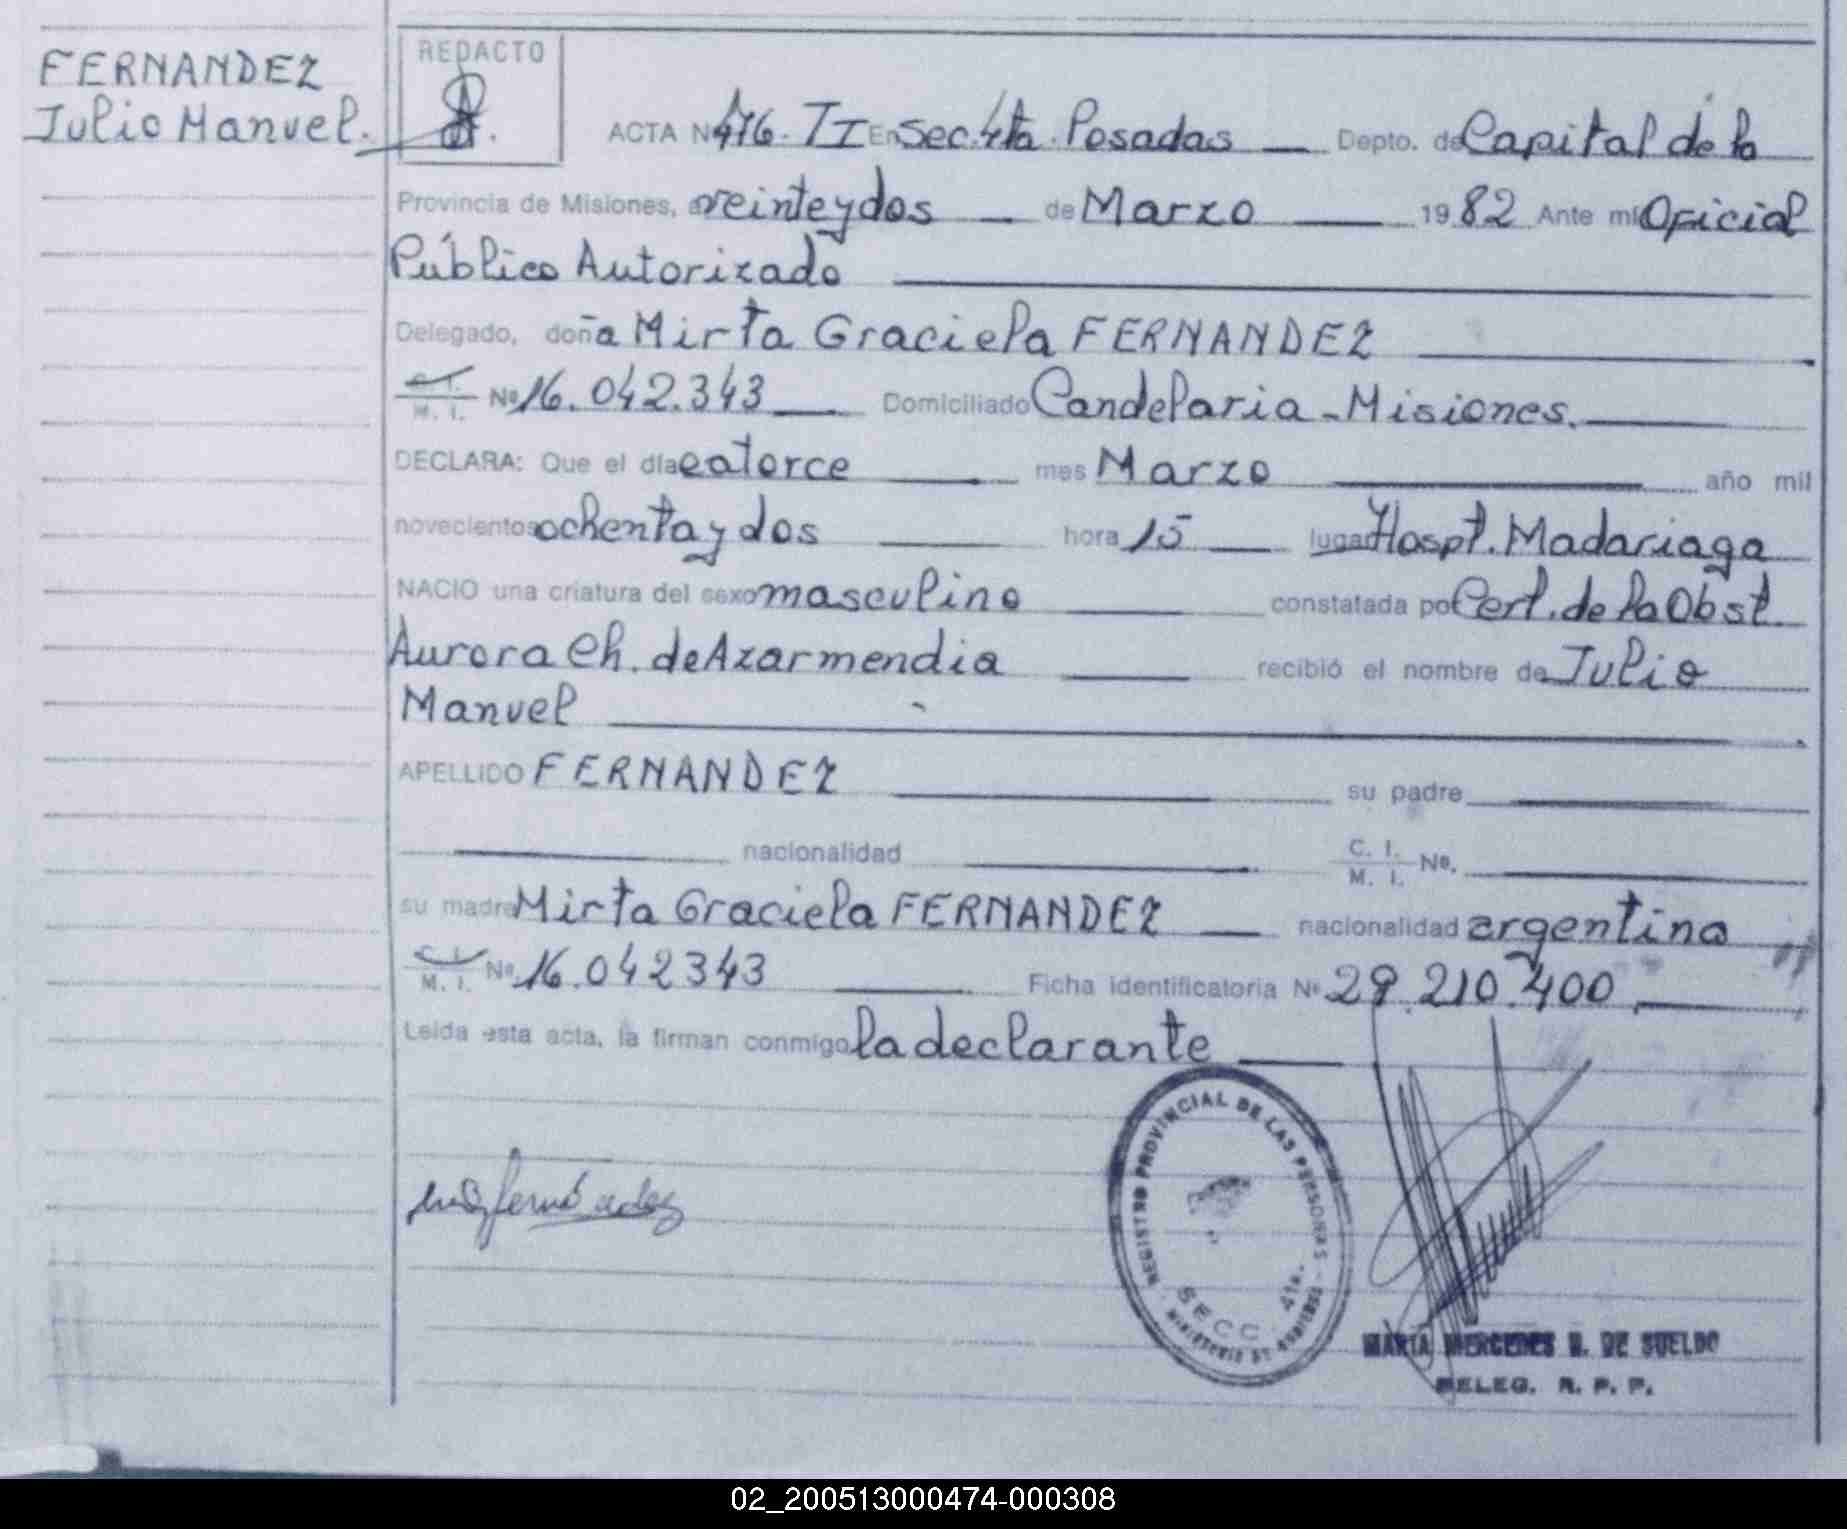 FERNANDEZ
Julio Manuel.
REDACTO
ACTA Nº 476. TI En Sec. 4ta. Posadas Depto. de Capital de la
Provincia de Misiones, a veinte y dos de Marzo 19 82 Ante mí Oficial
Público Autorizado
Delegado, doña Mirta Graciela FERNANDEZ
C. I.
M. I. Nº 16.042.343 Domiciliado Candelaria - Misiones.
DECLARA: Que el día catorce mes Marzo año mil
novecientos ochenta y dos hora 15 lugar Hospt. Madariaga
NACIO una criatura del sexo masculino constatada por Cert. de la Obst.
Aurora Ch. de Azarmendia recibió el nombre de Julio
Manuel
APELLIDO FERNANDEZ su padre
nacionalidad C. I.
M. I. Nº.
su madre Mirta Graciela FERNANDEZ nacionalidad argentina
C. I.
M. I. Nº 16.042343 Ficha identificatoria Nº 29.210.400
Leida esta acta, la firman conmigo la declarante
REGISTRO PROVINCIAL DE LAS PERSONAS
SECC. 4ta.
MARIA MERCEDES DE SUELDO
DELEG. R. P. P.
02_200513000474-000308